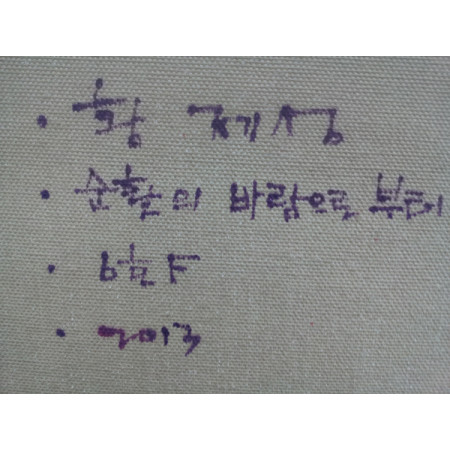 · 황 제성
· 순환의 바람으로 부터
· 6호 F
· 2013